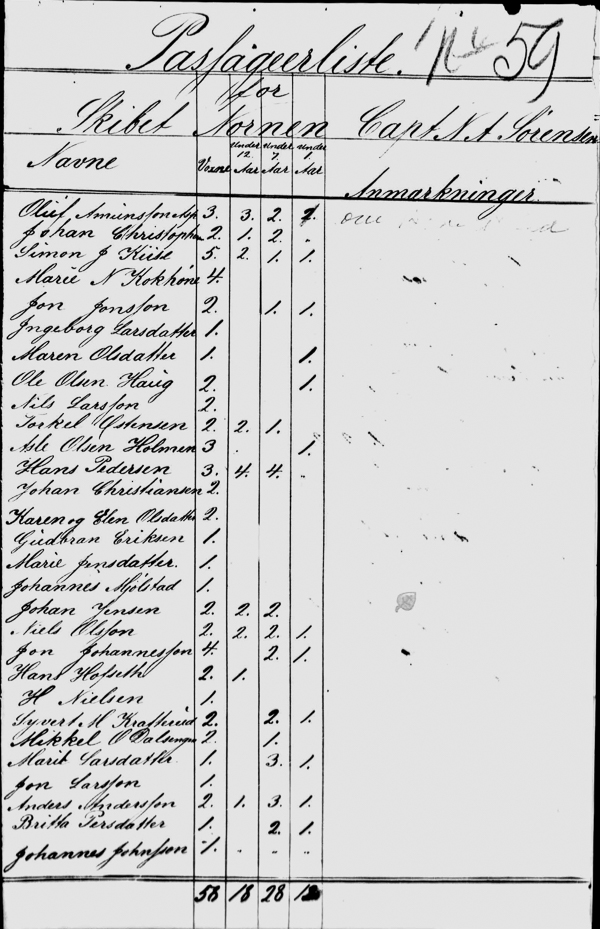 Passageerliste. No 59
for
Skibet Nornen Capt N A Sörensen
Navne Voxne Under 12 Aar Under 7. Aar Under 1. Aar Anmarkninger.
Oluf Amunsson Asp 3. 3. 2.
Johan Christophe 2. 1. 2. "
Simon J Kise 5. 2. 1. 1.
Marie N Kokhöne 4.
Jon Jonsson 2. 1. 1.
Ingeborg Larsdatter 1.
Maren Olsdatter 1. 1.
Ole Olsen Haug 2. 1.
Nils Larsson 2.
Torkel Östensen 2. 2. 1.
Asle Olsen Holmen 3 1.
Hans Pedersen 3. 4. 4.
Johan Christiansen 2.
Karen og Elen Olsdatter 2.
Gudbran Eriksen 1.
Marie Jensdatter. 1.
Johannes Mjölstad 1.
Johan Jensen 2. 2. 2
Niels Olsson 2. 2. 2. 1.
Jon Johannesson 4. 2. 1.
Hans Hofseth 2. 1.
H Nielsen 1.
Syvert M Krafterud 2. 2. 1.
Mikkel O Dalsengen 2. 1.
Marit Larsdatter 1. 3. 1.
Jon Larsson 1.
Anders Andersson 2. 1. 3. 1.
Britta Persdatter 1. 2. 1.
Johannes Johnsson 1. " " "
58 18 28 12